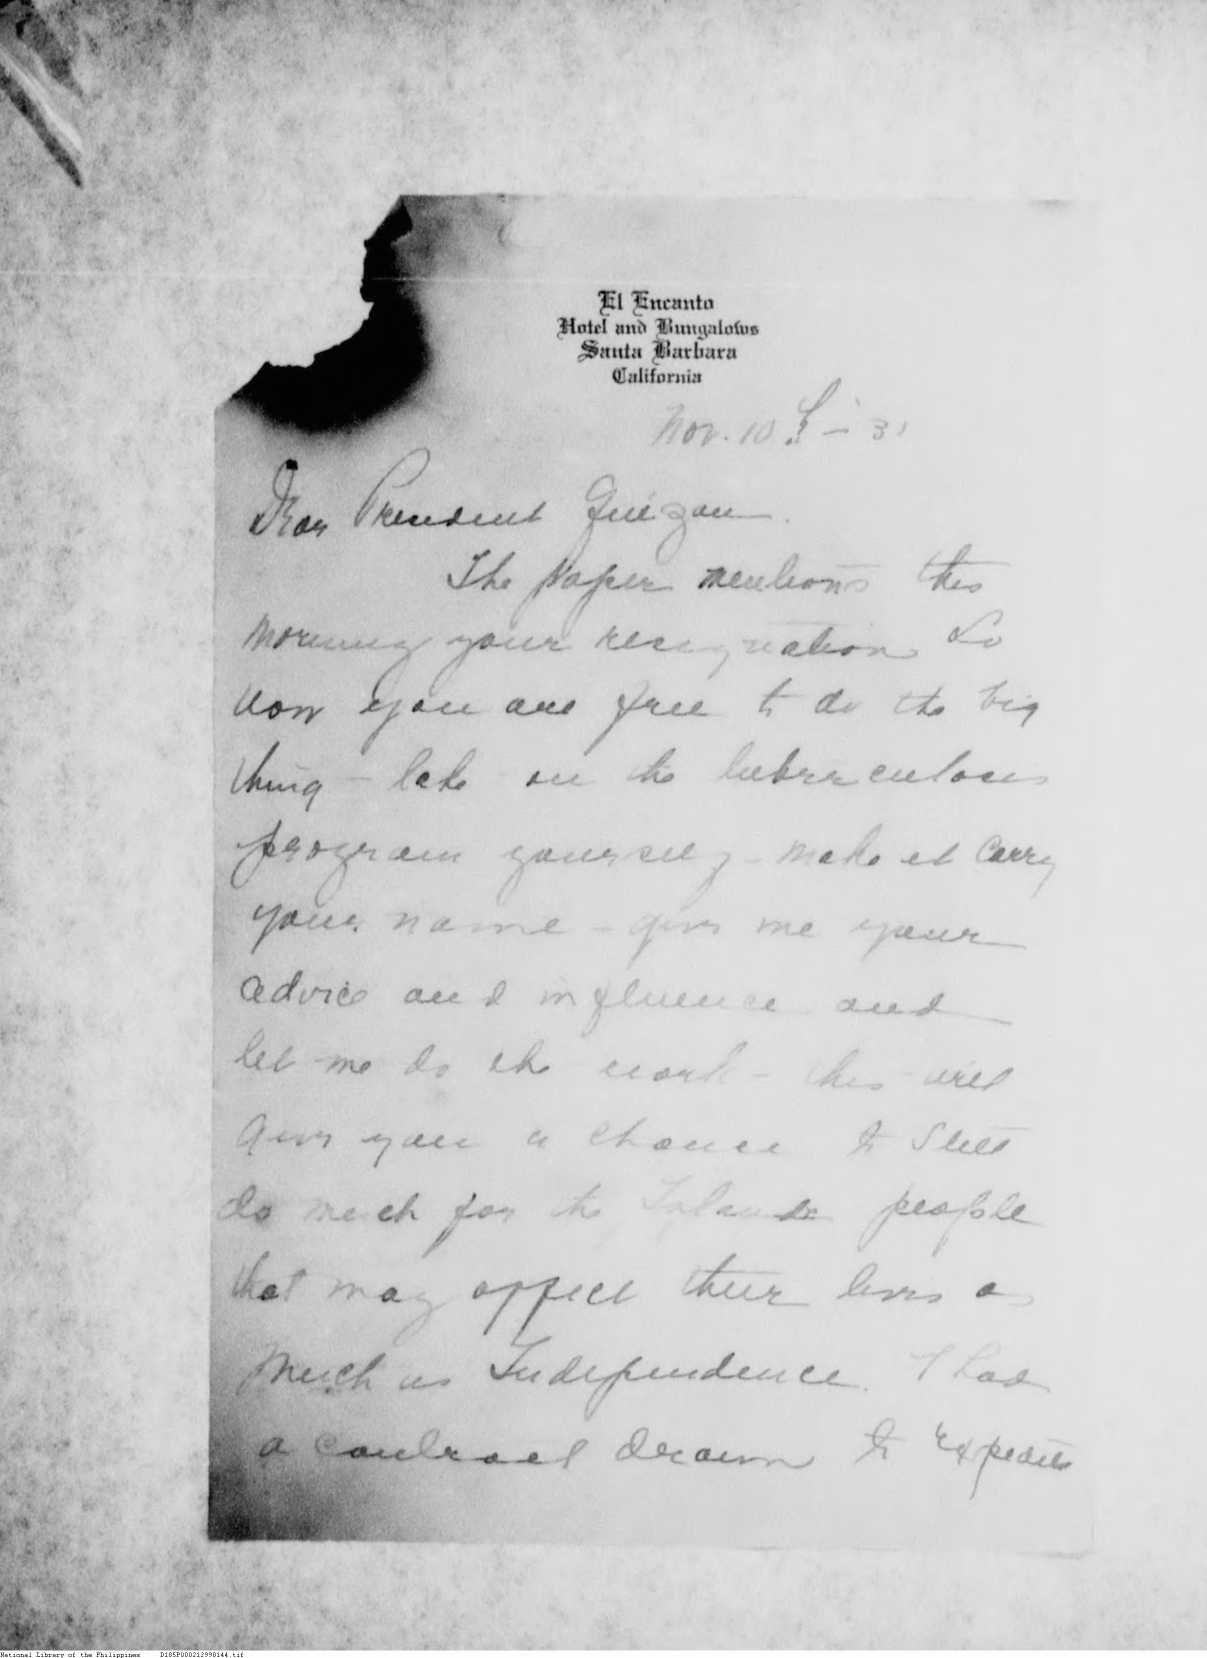 El Encanto
Hotel and Bungalows
Santa Barbara
California
Nov. 10 - 31
Dear President Quezon
The paper mentions this
morning your resignation So
now you are free to do the big
thing - take on the tuberculosis
program yourself - make it carry
your name - give me your
advice and influence and
let me do the work - this will
give you a chance to still
do much for the Islands people
that may affect their lives as
much as Independence. I had
a contract drawn to expedite
National Library of the Philippines D185P000212998144.tif